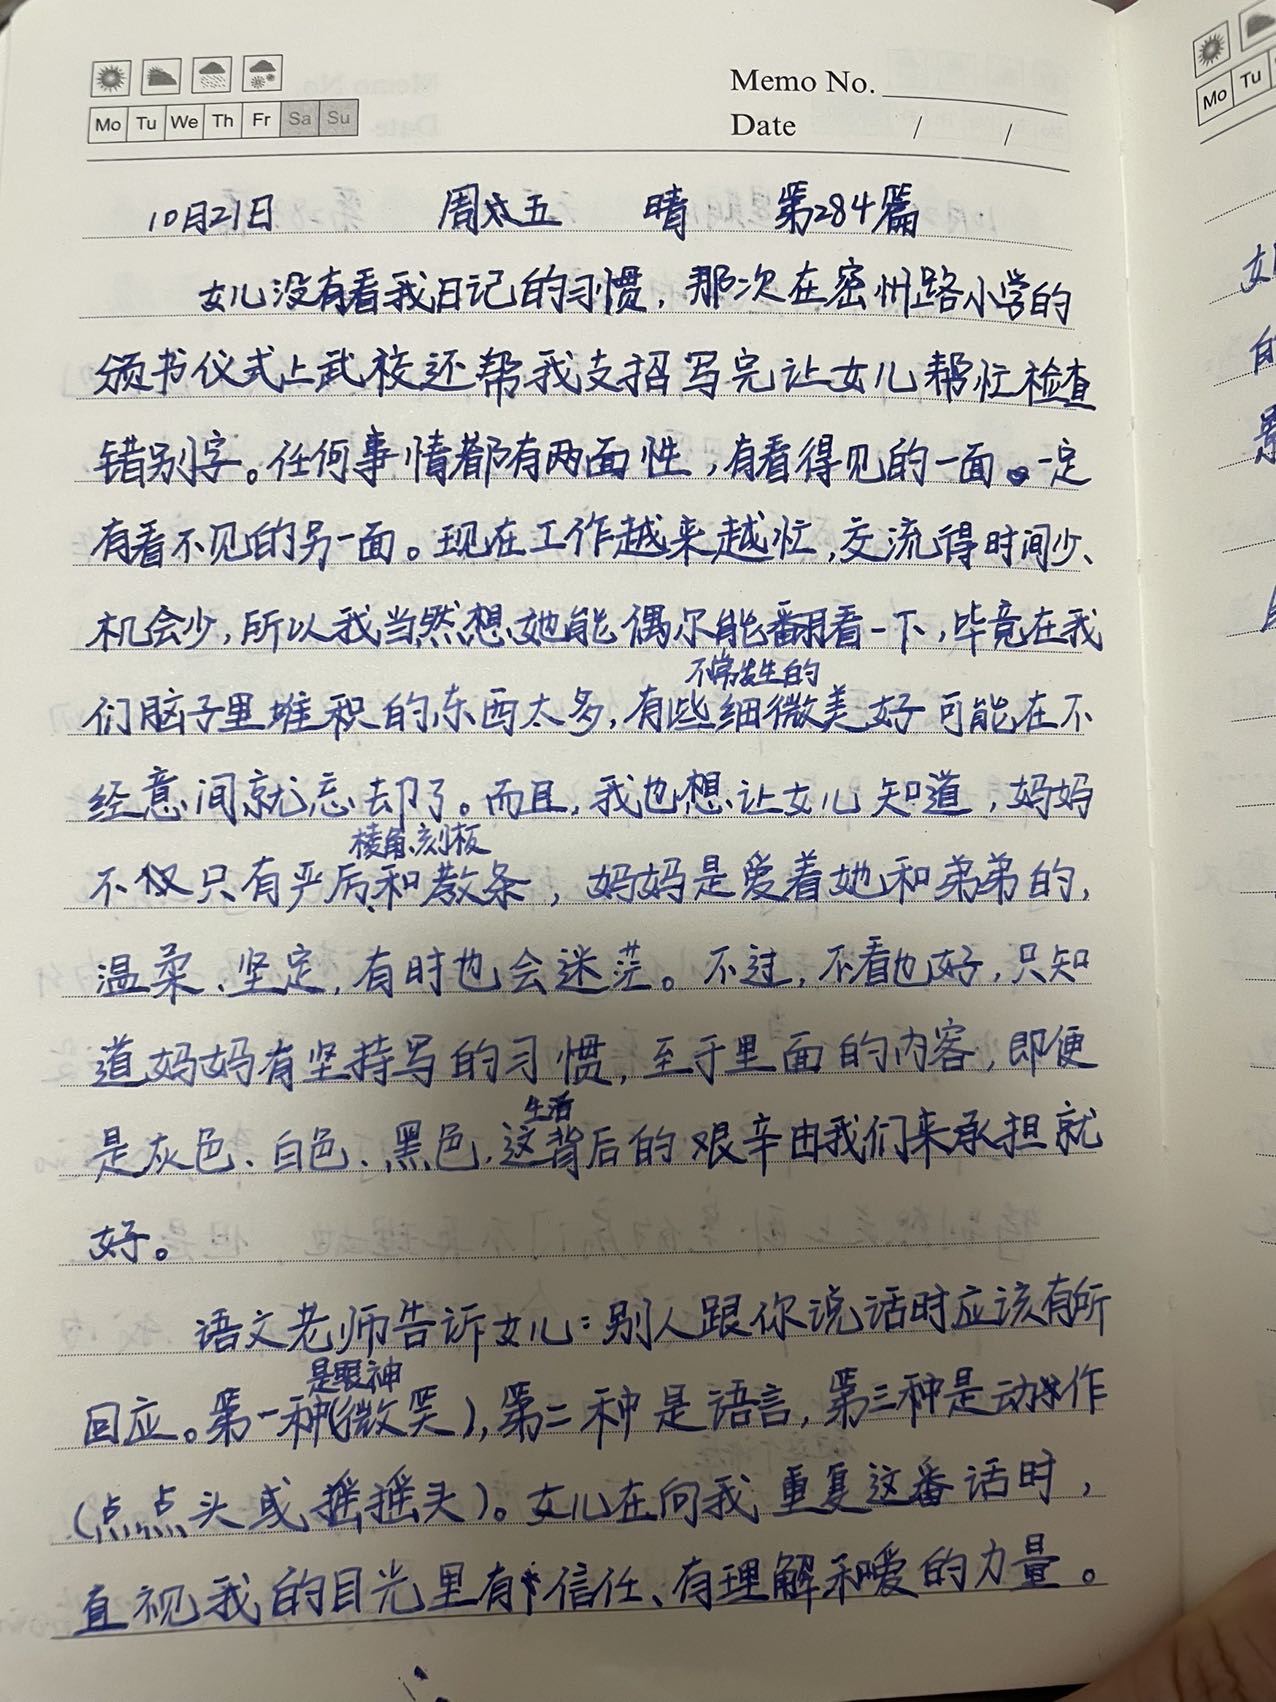 Memo No.
Mo Tu We Th Fr Sa Su
Date / /
Mo Tu
10月21日 周五 晴 第284篇
女儿没有看我日记的习惯，那次在密州路小学的
颁书仪式上武校还帮我支招写完让女儿帮忙检查
错别字。任何事情都有两面性，有看得见的一面。一定
有看不见的另一面。现在工作越来越忙，交流得时间少、
机会少，所以我当然想她能偶尔能翻看一下，毕竟在我
不常发生的
们脑子里堆积的东西太多，有些细微美好可能在不
经意间就忘却了。而且，我也想让女儿知道，妈妈
棱角、刻板
不仅只有严厉和教条，妈妈是爱着她和弟弟的，
温柔、坚定，有时也会迷茫。不过，不看也好，只知
道妈妈有坚持写的习惯，至于里面的内容，即便
生活
是灰色、白色、黑色，这背后的艰辛由我们来承担就
好。
语文老师告诉女儿：别人跟你说话时应该有所
是眼神
回应。第一种(微笑)，第二种是语言，第三种是动作
(点点头或摇摇头)。女儿在向我重复这番话时，
直视我的目光里有信任、有理解和爱的力量。